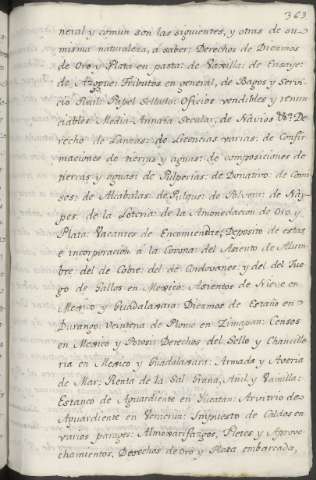 363
neral y comun son las siguientes, y otras de su
misma naturaleza, á saber: Derechos de Diezmos
de Oro y Plata en pasta: de Vaxilla: de Ensaye:
de Azogue: Tributos en general, de Bagos y Servi
cio Real: Papel Sellado: Oficios vendibles y renun
ciables: Media Annata Secular, de Navios: De
recho de Lanzas: de Licencias varias: de Confir
maciones de tierras y aguas: de composiciones de
tierras y aguas: de Pulperias: de Donativo de
sos: de Alcabalas: de Pulque: de Polvora: de Nay
pes: de la Loteria: de la Amonedacion de Oro y
Plata: Vacantes de Encomiendas, Deposito de estas
é incorporacion á la Corona: del Asiento de Alum
bre: del de Cobre: del de Cordovanes: y del del Jue
go de Gallos en Mexico: Asientos de Nieve en
Mexico y Guadalaxara: Diezmos de Estaño en
Durango: Veintena de Plomo en Zimapan: Censos
en Mexico y Potosi: Derechos del Sello y Chancille
ria en Mexico y Guadalaxara: Armada y Averia
de Mar: Renta de la Sal: Grana, Añil y Vainilla:
Estanco de Aguardiente en Yucatan: Arvitrio de
Aguardiente en Veracruz: Impuesto de Caldos en
varios parages: Almoxarifazgos, Fletes y Aprove
chamientos, Derechos de Oro y Plata embarcado,